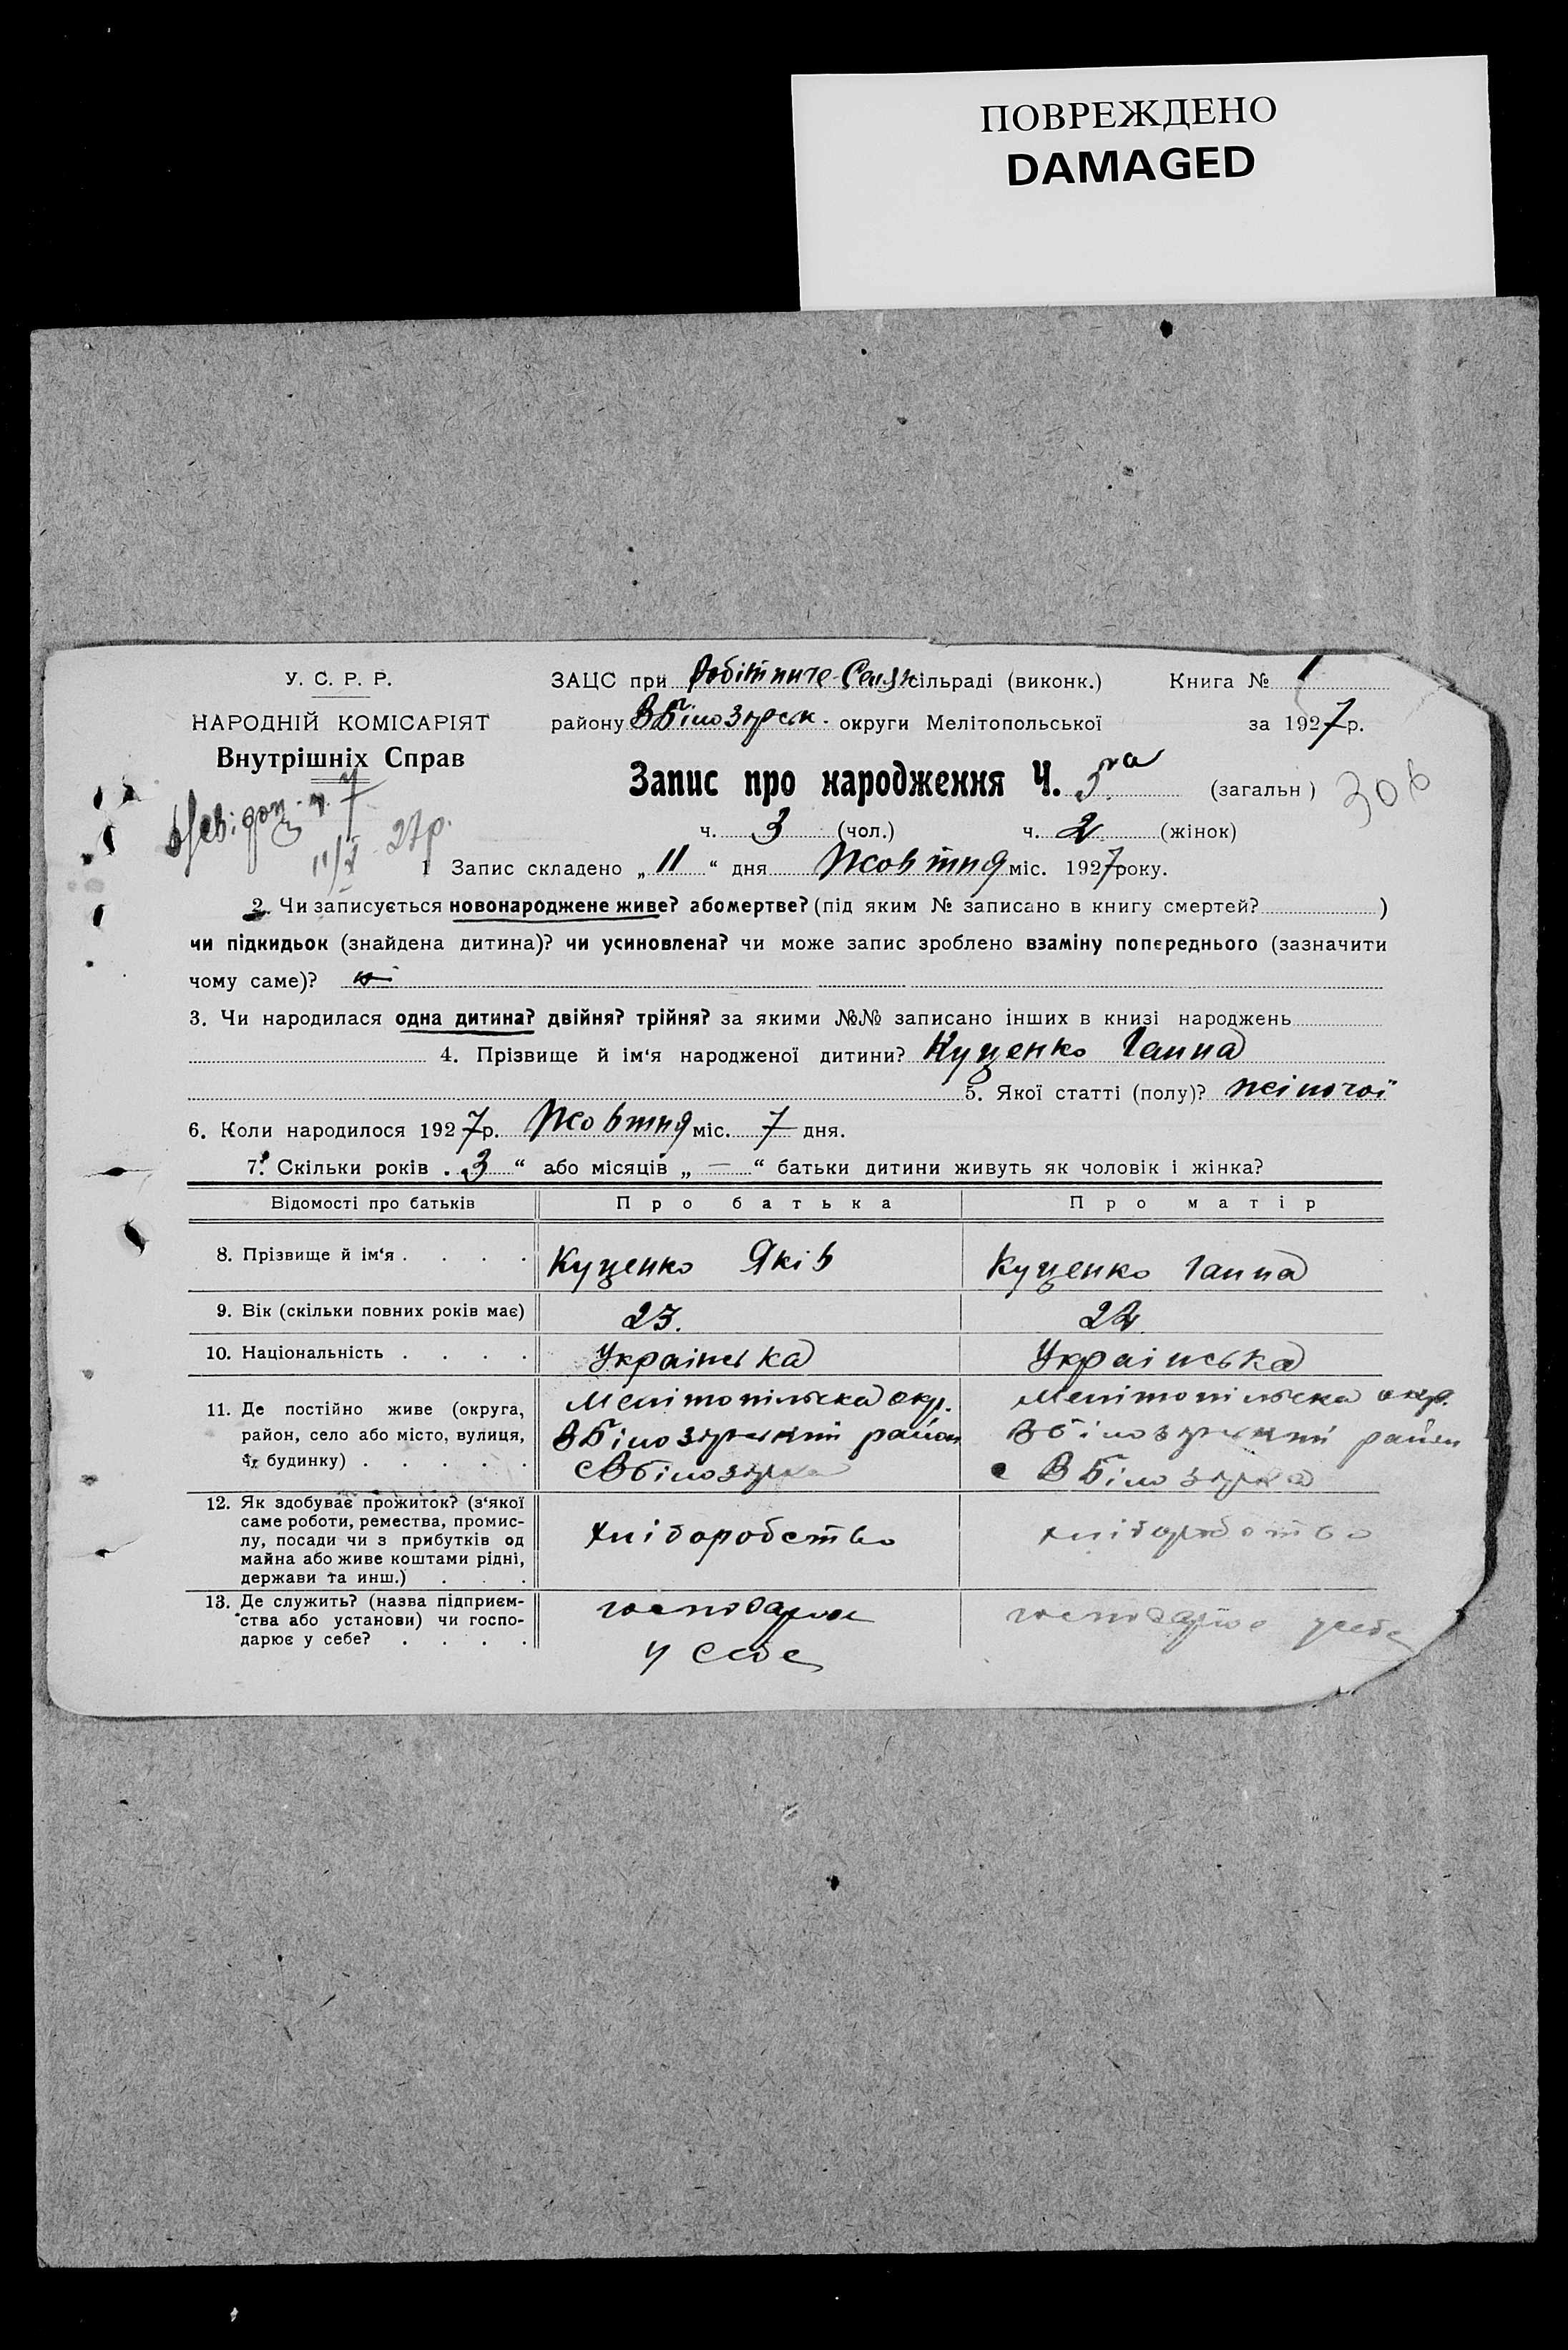 ПОВРЕЖДЕНО
DAMAGED
У. С. Р. Р.
НАРОДНІЙ КОМІСАРІЯТ
Внутрішніх Справ
ЗАЦС при Робітниче-Селян сільраді (виконк.) Книга № 1
району ВБілозурськ. округи Мелітопольської за 1927 р.
Запис про народження Ч. 5 на (загальн)
306
ч. 3 (чол.) ч. 2 (жінок)
11/X 27р.
1 Запис складено „ 11 “ дня Жовтня міс. 1927 року.
2. Чи записується новонароджене живе? або мертве? (під яким № записано в книгу смертей? )
чи підкидьок (знайдена дитина)? чи усиновлена? чи може запис зроблено взаміну попереднього (зазначити
чому саме)?
3. Чи народилася одна дитина? двійня? трійня? за якими №№ записано інших в книзі народжень
4. Прізвище й ім‘я народженої дитини? Куценко Ганна
5. Якої статті (полу)? жіночої
6. Коли народилося 1927 р. Жовтня міс. 7 дня.
7. Скільки років „ 3 “ або місяців „ — “ батьки дитини живуть як чоловік і жінка?
Відомості про батьків Про батька Про матір
8. Прізвище й ім‘я . . . . Куценко Яків Куценко Ганна
9. Вік (скільки повних років має) 23. 22
10. Національність . . . . Українська Українська
11. Де постійно живе (округа, Мелітопільска окр. Мелітопільска окр.
район, село або місто, вулиця, ВБілозурський район ВБілозурський район
ч. будинку) . . . . . с ВБілозурка с ВБілозурка
12. Як здобуває прожиток? (з‘якої
саме роботи, ремества, промис-
лу, посади чи з прибутків од хліборобство хліборобство
майна або живе коштами рідні,
держави та инш.) . . .
13. Де служить? (назва підприєм- господарює господарює у себе
ства або установи) чи госпо-
дарює у себе? . . . . у себе